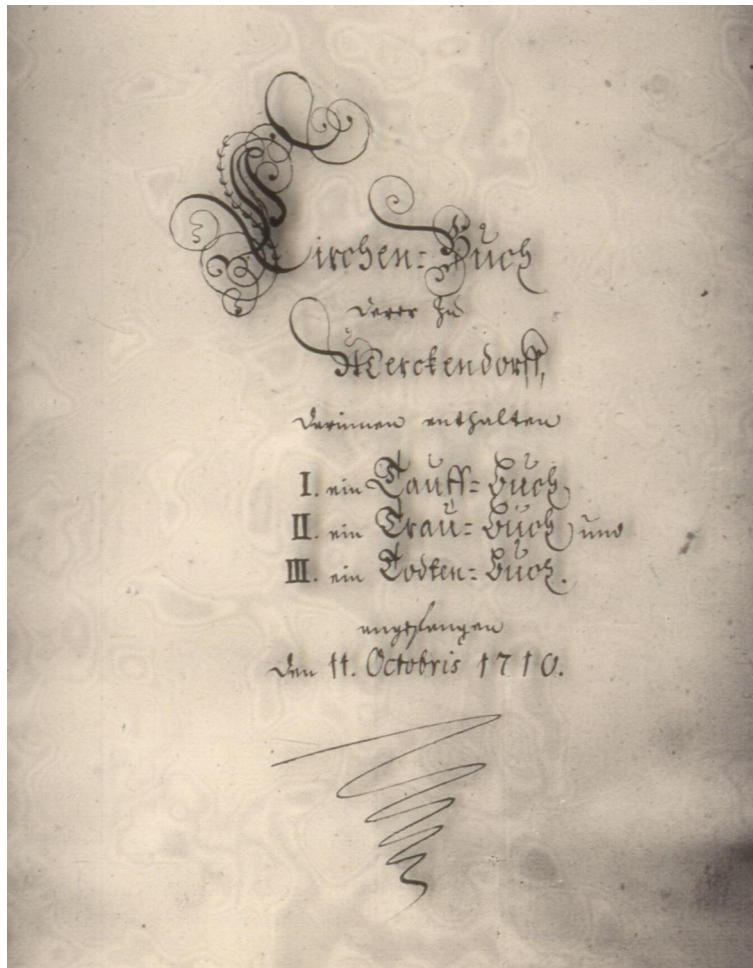 Kirchen=Buch
derer zu
Merckendorff,
darinnen enthalten
I. ein Tauff=Buch,
II. ein Trau=Buch und
III. ein Todten=Buch.
angefangen
den 11. Octobris 1710.